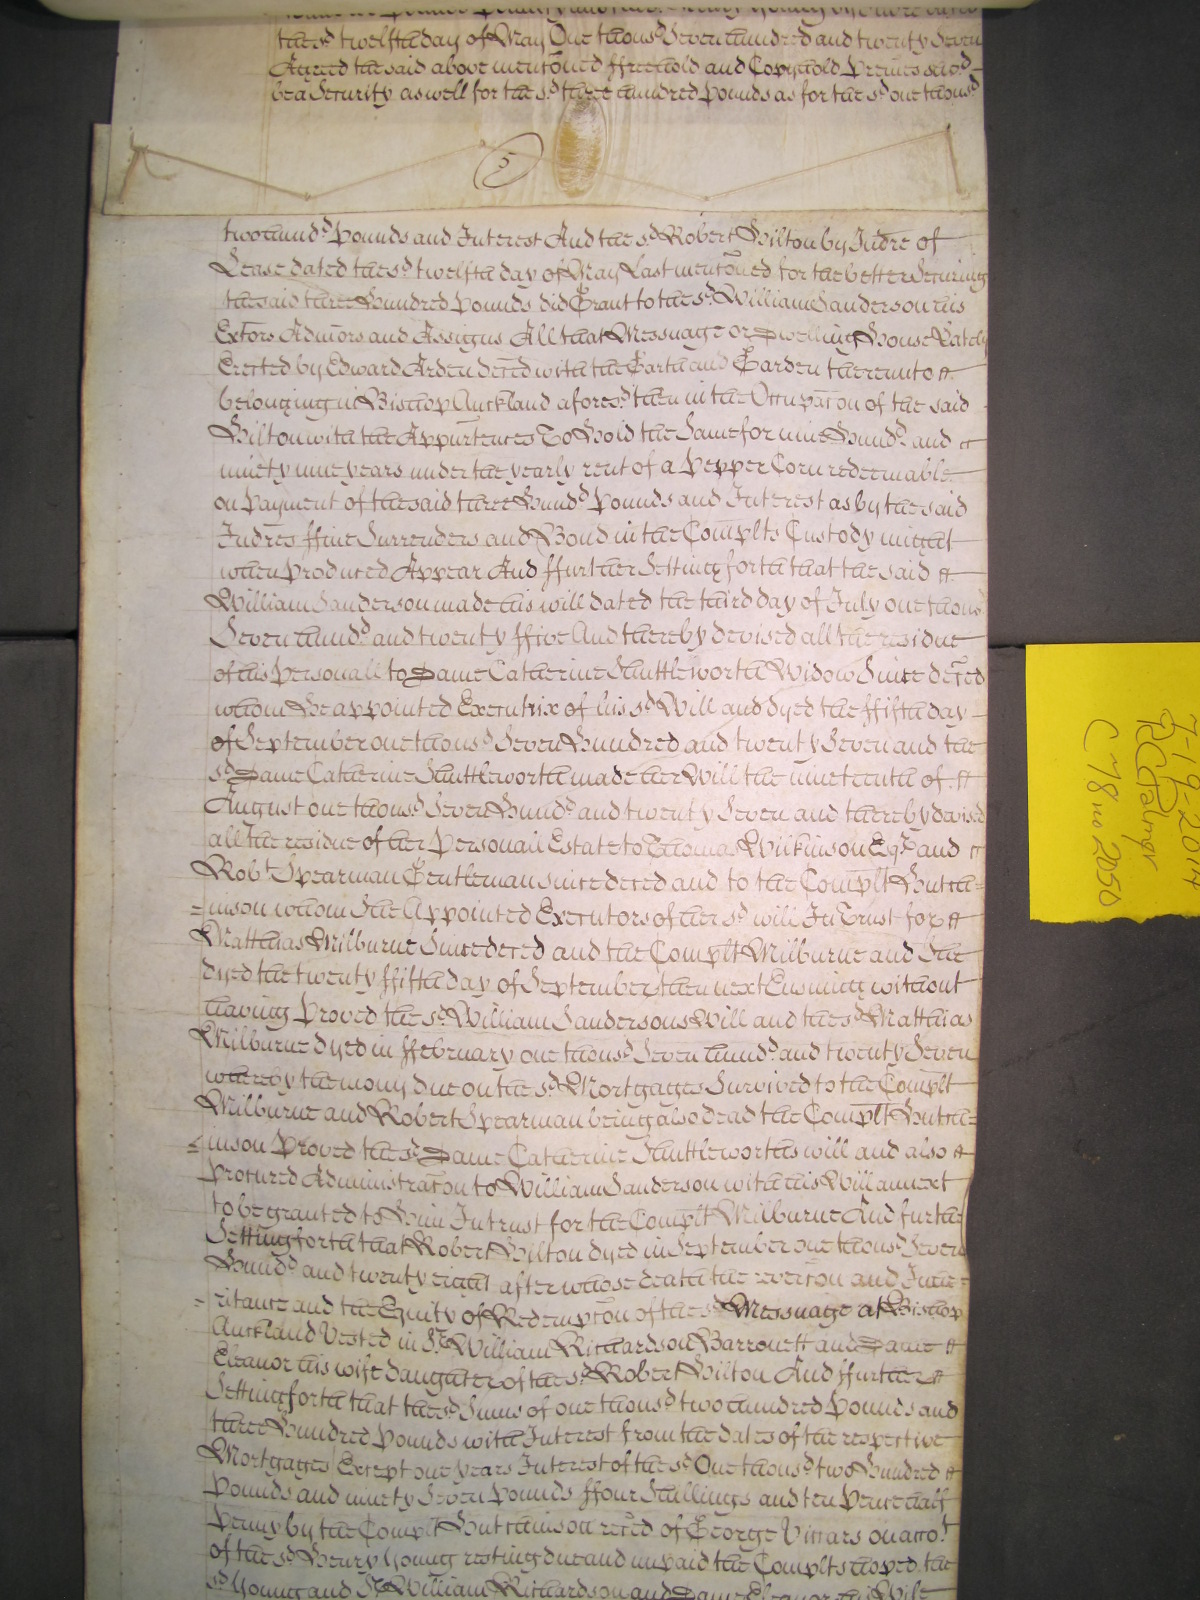 the sd twelfth day of May One thousd Seven hundred and twenty Seven
Agreed the said above mentoned ffreehold and Copyhold Premes shod
be a Security as well for the sd three hundred Pounds as for the sd one thousd
5
two hundd Pounds and Interest And the sd Robert Hilton by Indre of
Lease dated the sd twelfth day of May Last mentoned for the better Securing
the said three Hundred Pounds did Grant to the sd William Sanderson his
Extors Admtors and Assigns All that Messuage or Dwelling House Lately
Erected by Edward Arden deced with the Garth and Garden thereunto
belonging in Bishop Auckland aforesd then in the Occupacon of the said
Hilton with the Appurtences To Hold the Same for nine Hundd and
ninety nine years under the yearly rent of a Pepper Corn redeemable
on Payment of the said three Hundd Pounds and Interest as by the said
Indres ffine Surrenders and Bond in the Complts Custody might
when produced Appear And ffurther Setting forth that the said
William Sanderson made his will dated the third day of July one thousd
Seven hundd and twenty ffive And thereby devised all the residue
of his Personall to Dame Catherine Shuttleworth Widow Since deced
whom He appointed Executrix of his sd Will and dyed the ffifth day
of September one thousd Seven Hundred and twenty Seven and the
sd Dame Catherine Shuttleworth made her Will the nineteenth of
August one thousd Seven Hundd and twenty Seven and thereby devised
all the residue of her Personall Estate to Thomas Wilkinson Esqr and
Robt Spearman Gentleman since deced and to the Complt Hutch=
=inson whom She Appointed Executors of her sd will In Trust for
Matthias Milburne Since deced and the Complt Milburne and She
dyed the twenty ffifth day of September then next Ensuing without
having Proved the sd William Sandersons Will and the sd Matthias
Milburne dyed in ffebruary one thousd Seven hundd and twenty Seven
whereby the mony due on the sd Mortgages Survived to the Complt
Milburne and Robert Spearman being also dead the Complt Hutch=
=inson Proved the sd Dame Catherine Shuttleworths will and also
procured Administracon to William Sanderson with his Will annext
to be granted to Him In trust for the Complt Milburne And further
Setting forth that Robert Hilton dyed in September one thousd Seven
Hundd and twenty eight after whose death the revercon and Inhe=
=ritance and the Equity of Redempcon of the sd Messuage at Bishop
Auckland Vested in Sr William Richardson Barronett and Dame
Eleanor his wife daughter of the sd Robert Hilton And ffurther
Setting forth that the sd Sums of one thousd two hundred Pounds and
three Hundred Pounds with Interest from the dates of the respective
Mortgages Except one years Interest of the sd One thousd two Hundred
Pounds and ninety Seven Pounds ffour Shillings and ten Pence half
Penny by the Complt Hutchinson reced of George Vicars on acct
of the sd Henry Young resting due and unpaid the Complts hoped the
sd Young and Sr William Richardson and Dame Eleanor his Wife
7-19-2014
RCPalmer
C 78 no 2050